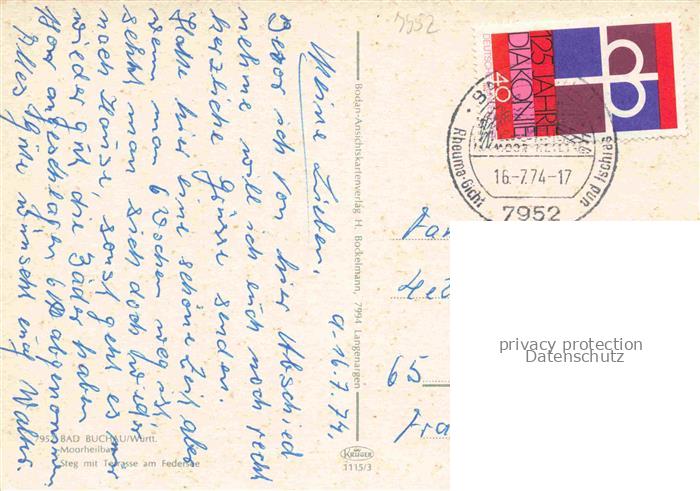 7952
d. 16.7.74,
Meine Lieben,
Bevor ich von hier Abschied
nehme will ich euch noch recht
herzliche Grüsse senden.
Hatte hier eine schöne Zeit aber
wenn man 6 Wochen weg ist
sehnt man sich doch wieder
nach Hause sonst geht es mir
wieder gut die Bäder haben
angeschlagen abgenommen.
Alles gute wünscht euch Walter.
7952 BAD BUCHAU/Württ.
Moorheilbad
Steg mit Terrasse am Federsee
Bodan-Ansichtskartenverlag H. Bockelmann, 7994 Langenargen
KRÜGER
1115/3
125 JAHRE
DIAKONIE
40
Rheuma-Gicht
und Ischias
16.-7.74-17
7952
65
privacy protection
Datenschutz